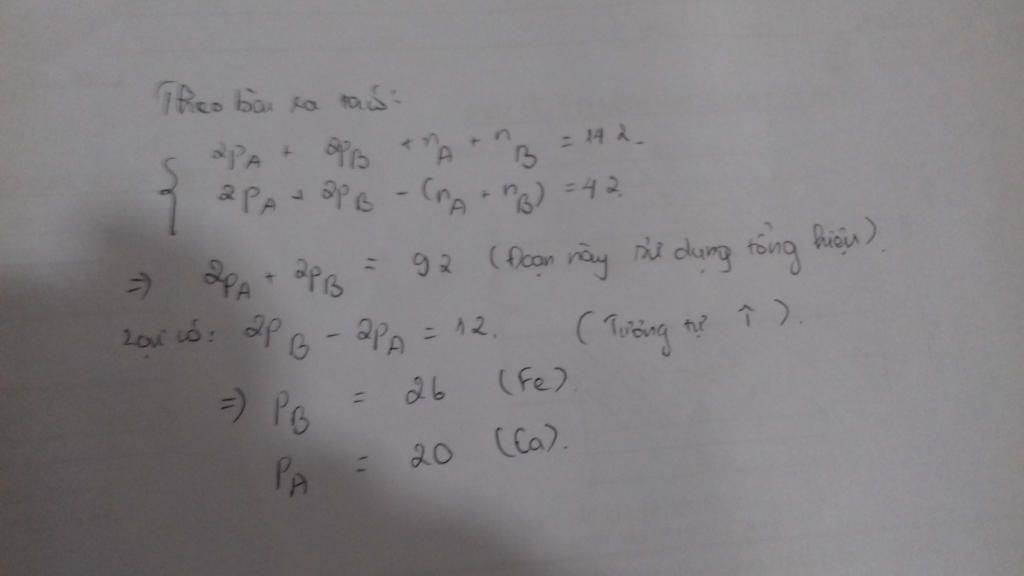 Theo bài ra ta có:
{ 2pA + 2pB + nA + nB = 142.
2pA + 2pB - (nA + nB) = 42
=> 2pA + 2pB = 92 (Đoạn này sử dụng tổng hiệu).
Lại có: 2pB - 2pA = 12. (Tương tự ↑).
=> pB = 26 (Fe)
pA = 20 (Ca).